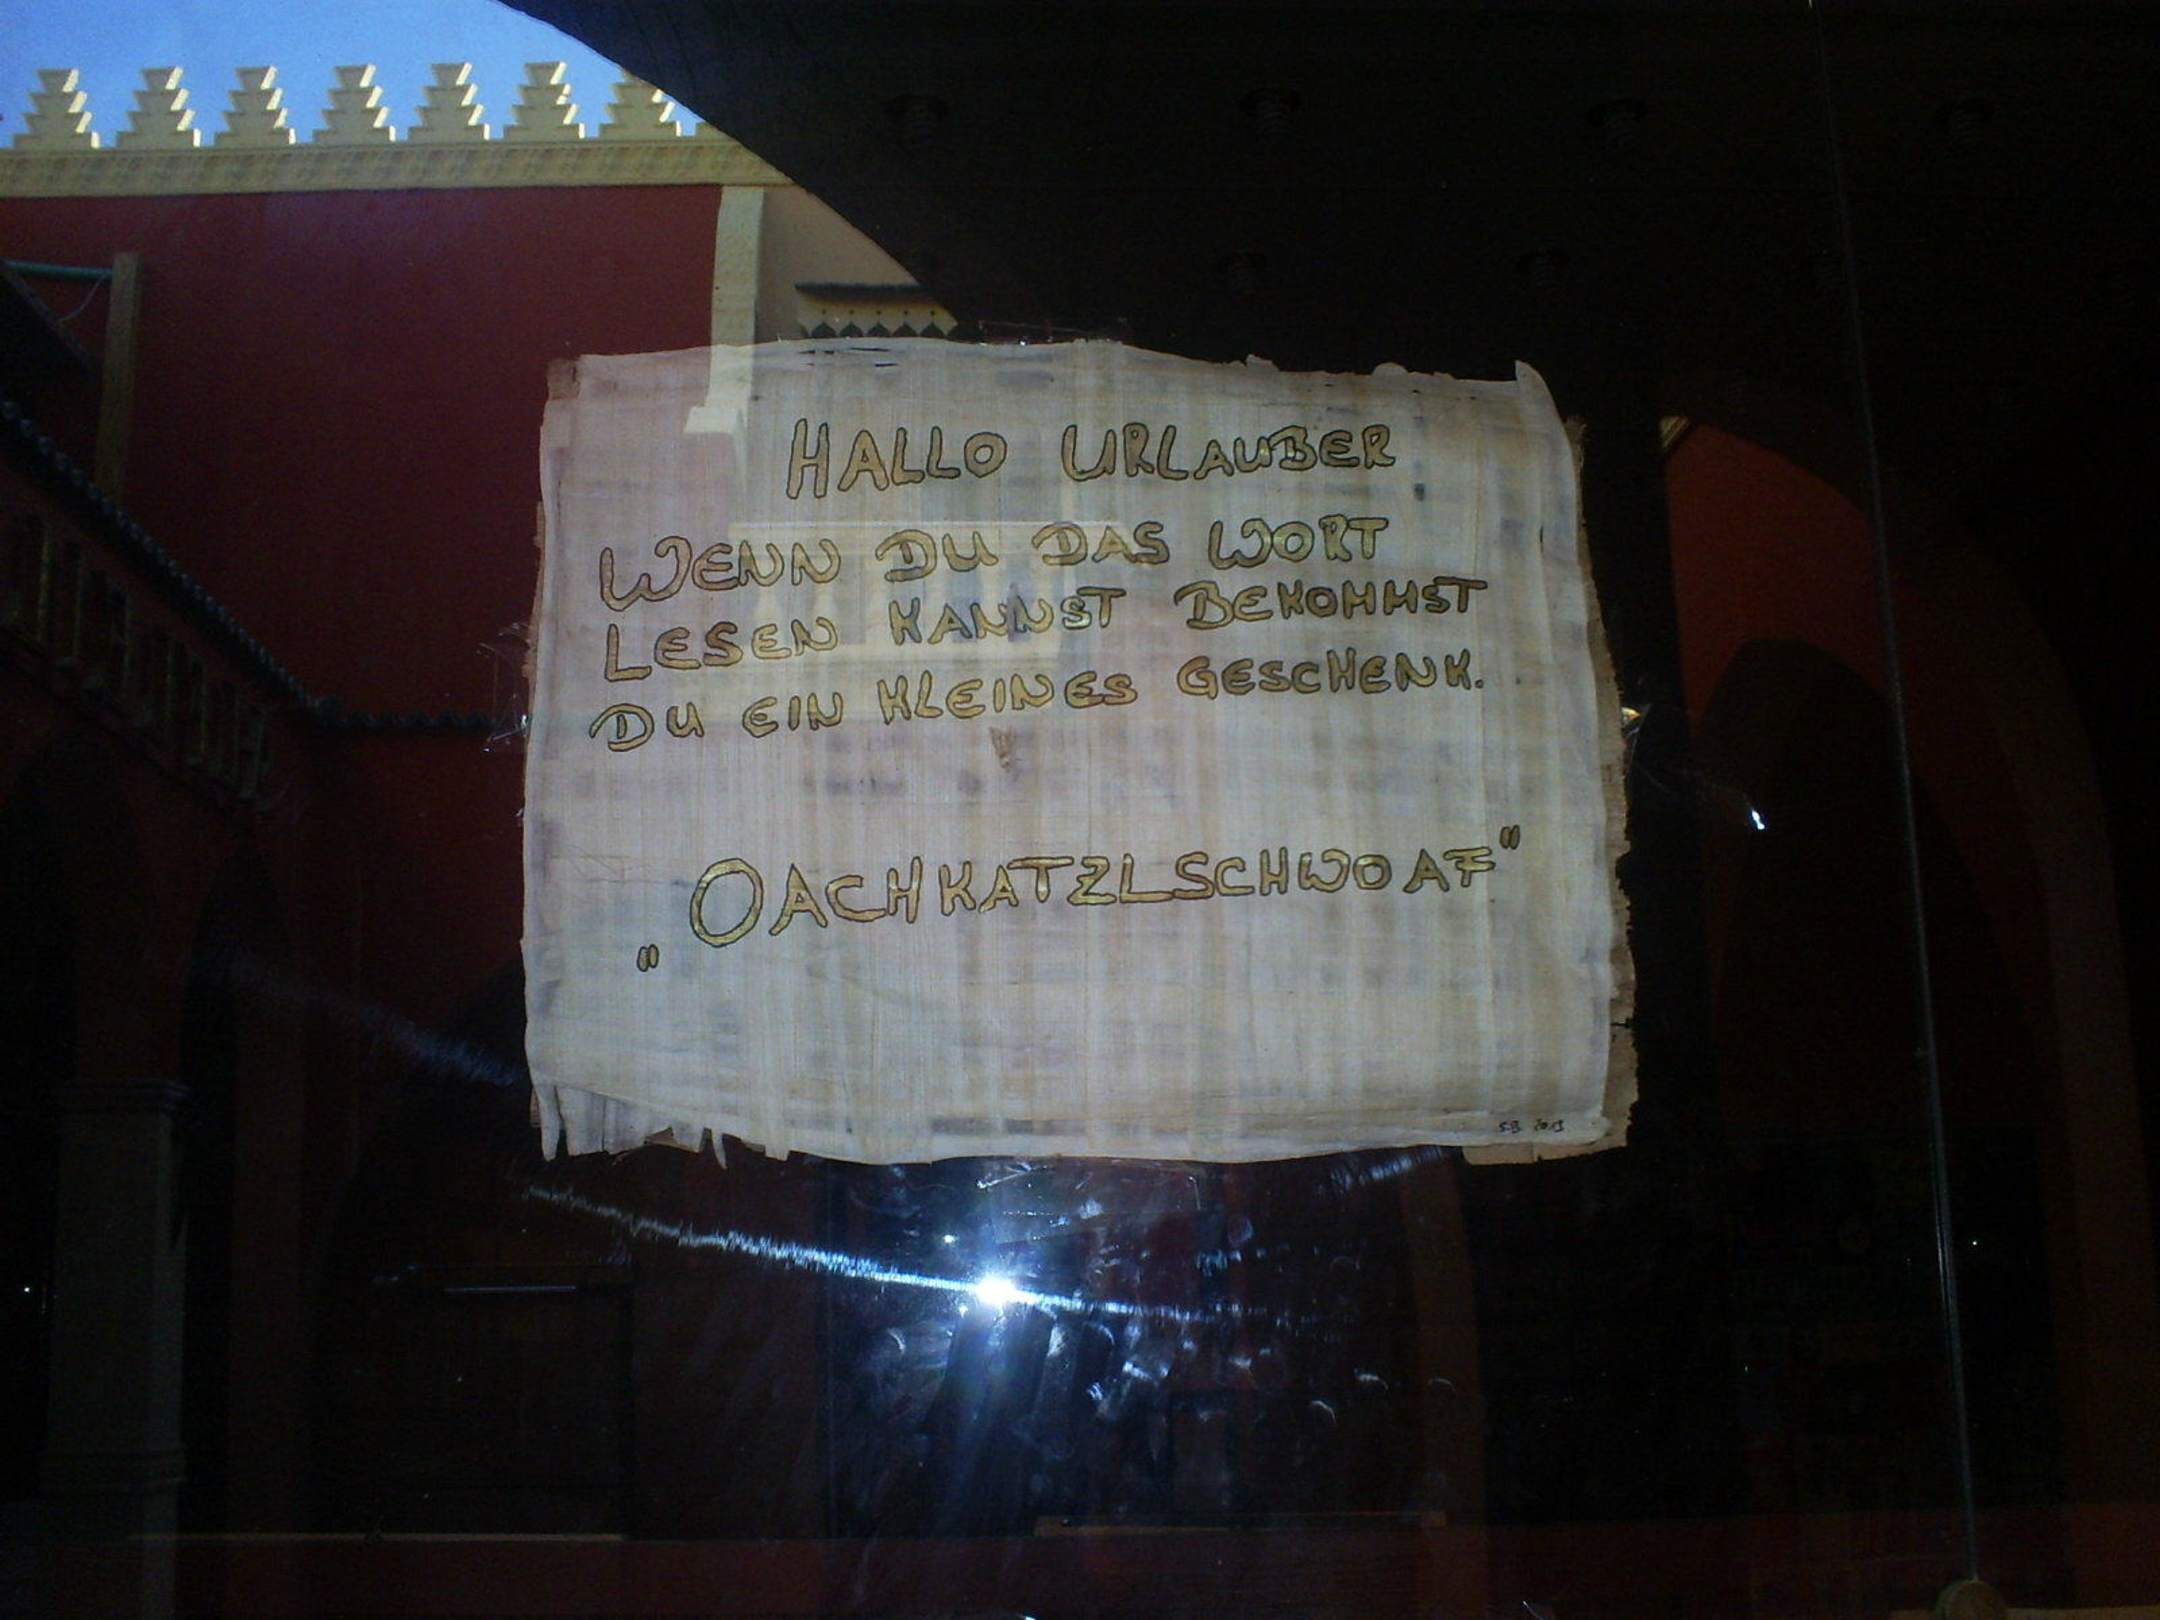 HALLO URLAUBER
WENN DU DAS WORT
LESEN KANNST BEKOMMST
DU EIN KLEINES GESCHENK.
„OACHKATZLSCHWOAF"